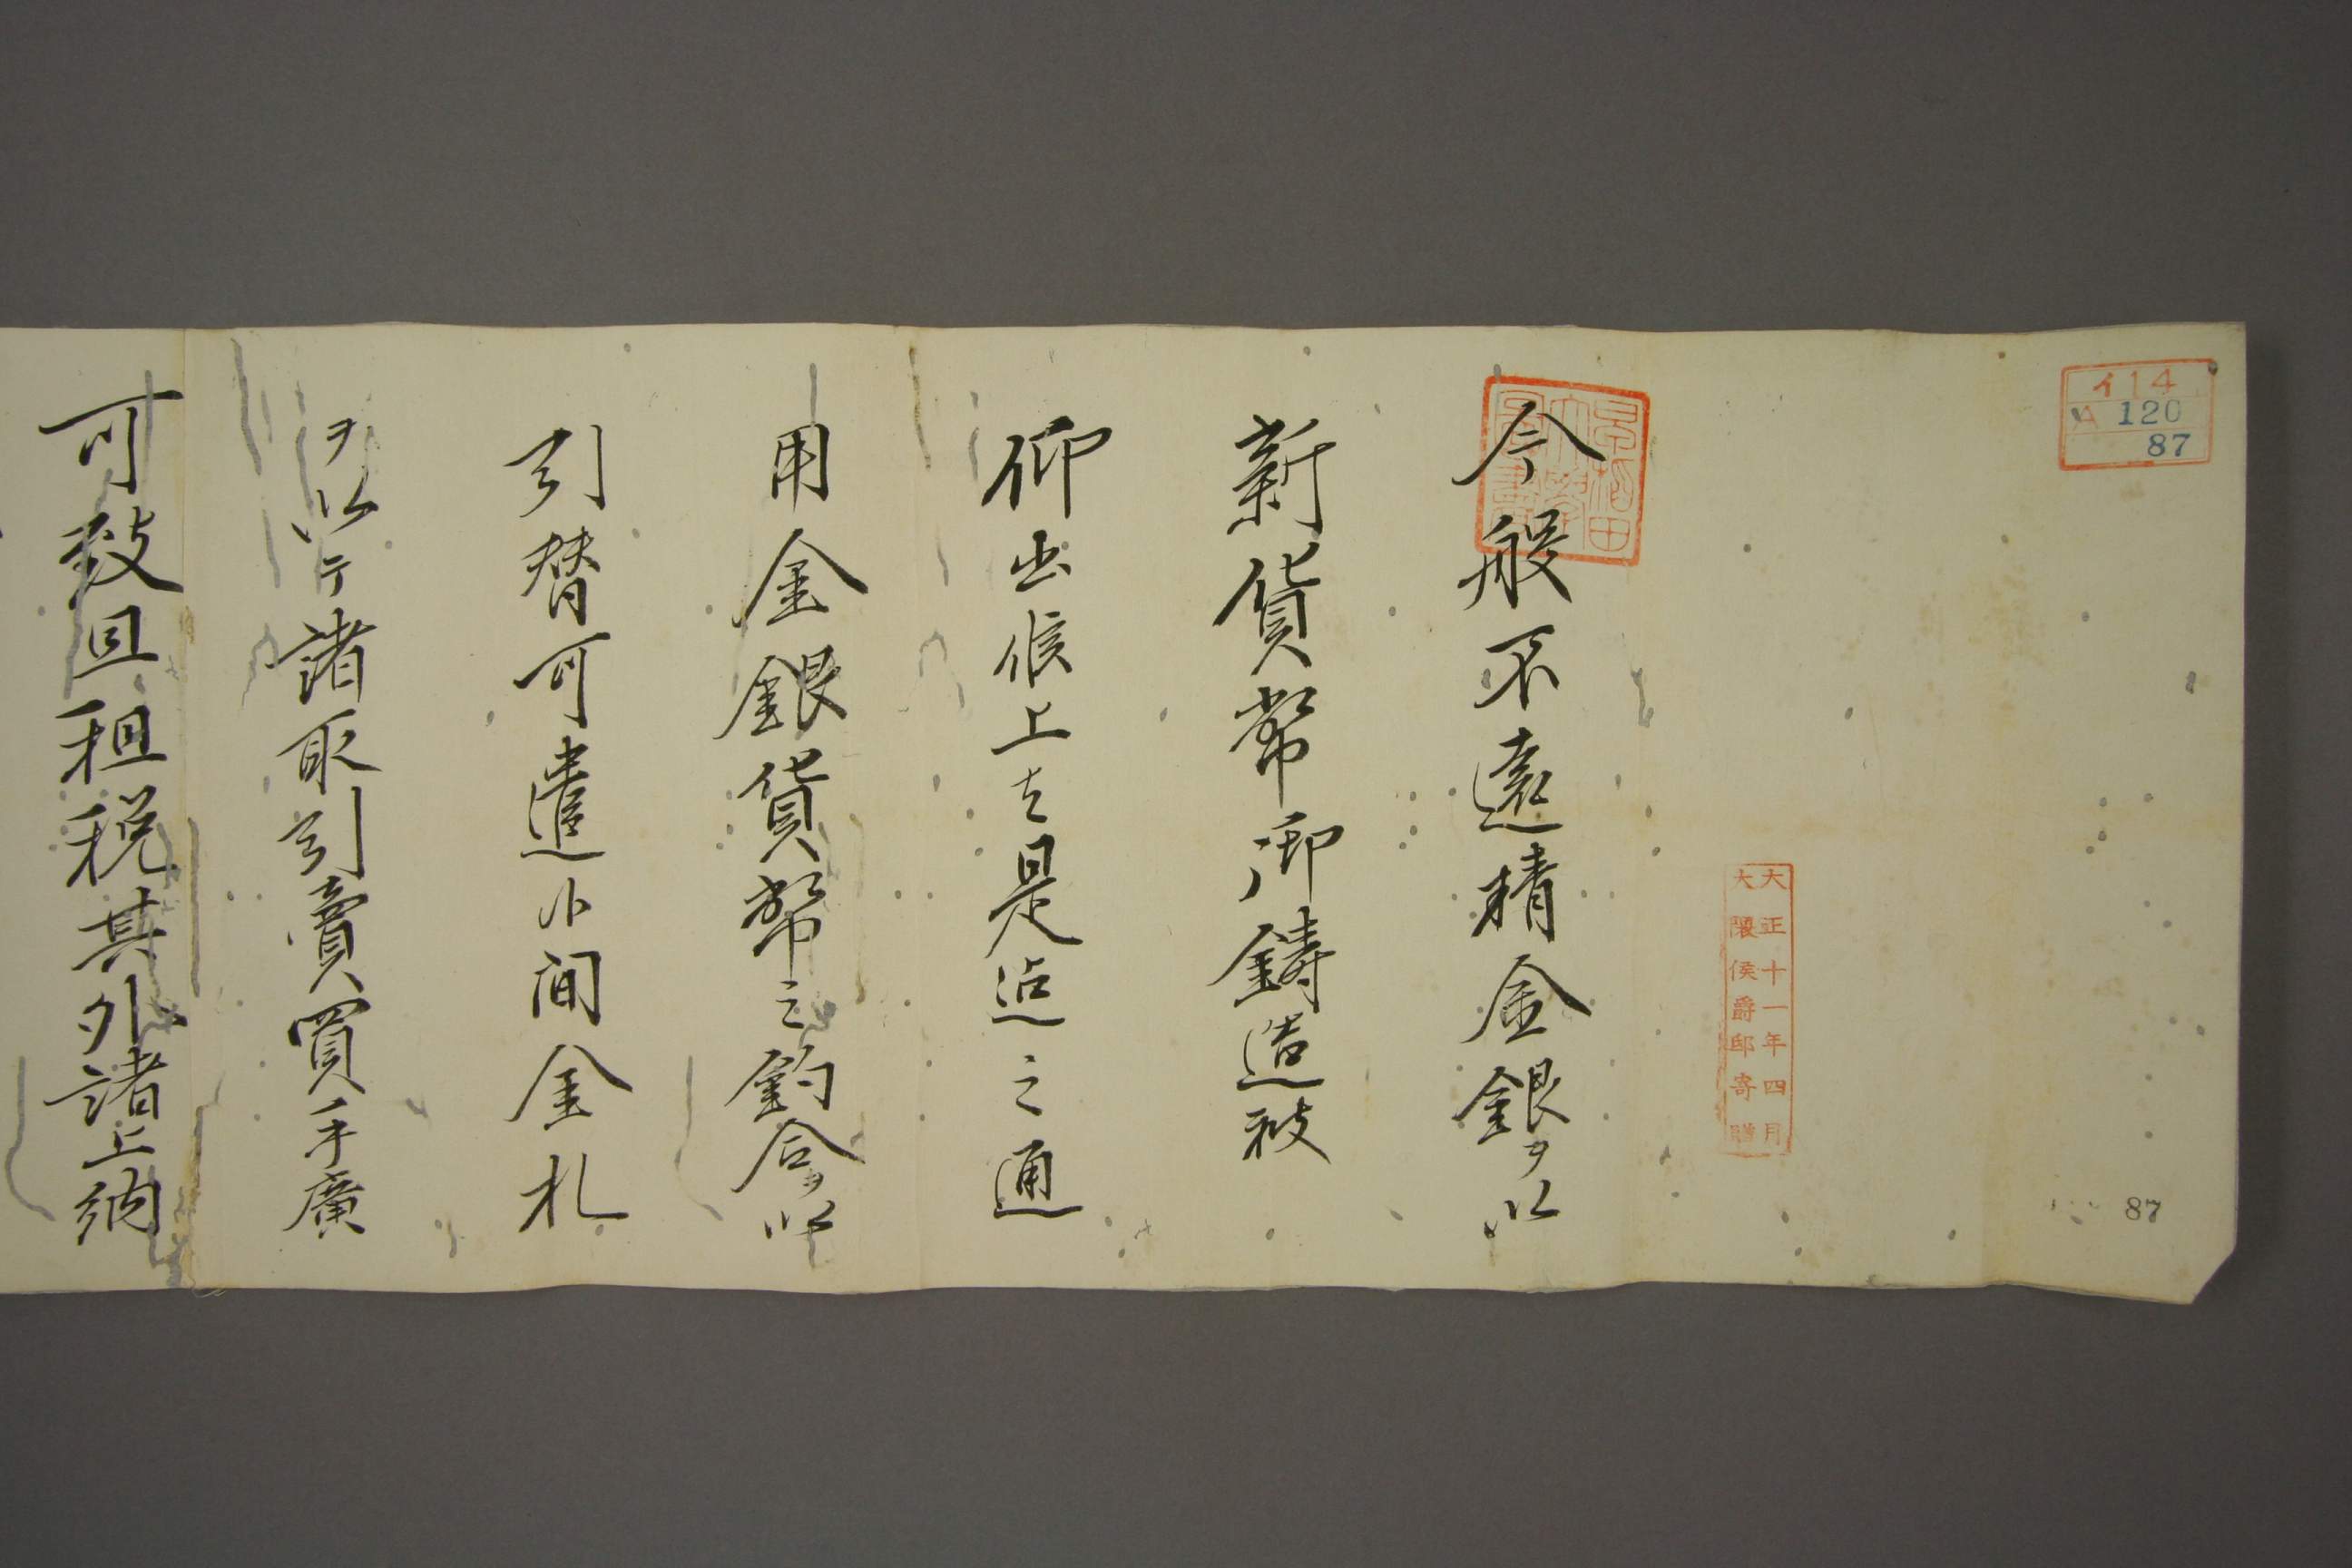 イ14
A 120
87
大正十一年四月
大隈侯爵邸寄贈
87
今般不遠精金銀ヲ以
新貨幣御鋳造被
仰出候上者是迠之通
用金銀貨幣之釣合ヲ以
引替可遣候間金札
ヲ以テ諸取引賣買手廣
可致且租税其外諸上納